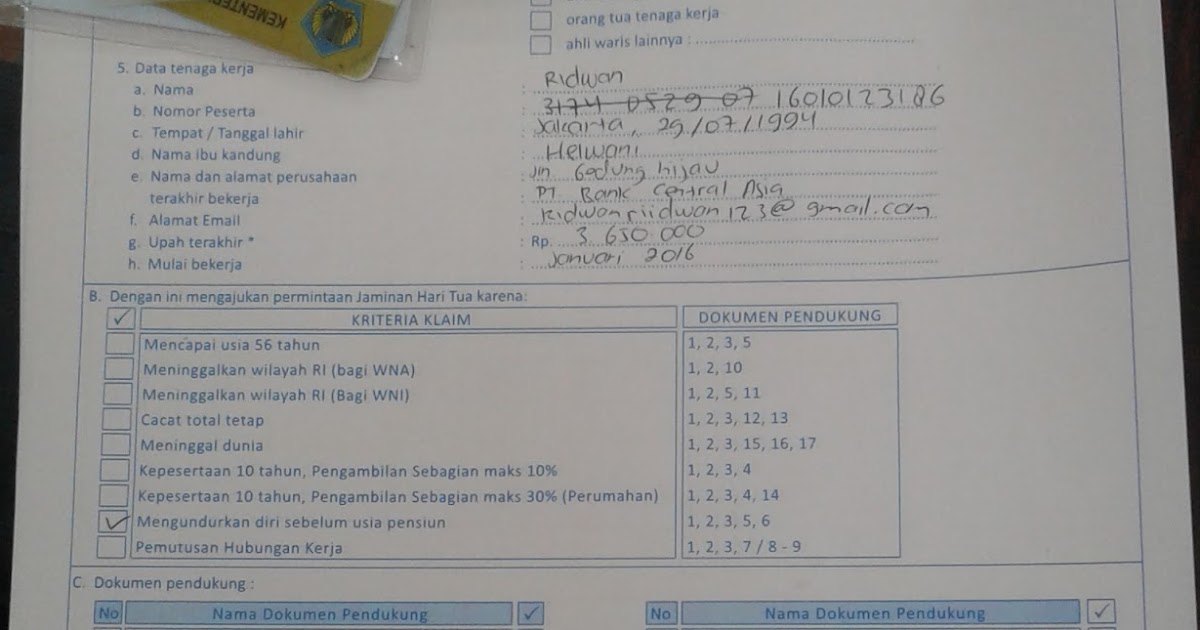 KEMENTER
orang tua tenaga kerja
ahli waris lainnya :
5. Data tenaga kerja
a. Nama : Ridwan
b. Nomor Peserta : 3174 0529 07 16010123186
c. Tempat / Tanggal lahir : Jakarta, 29/07/1994
d. Nama ibu kandung : Helwani
e. Nama dan alamat perusahaan : Jln Gedung hijau
terakhir bekerja : PT. Bank Central Asia
f. Alamat Email : Ridwanriidwan123@gmail.com
g. Upah terakhir * : Rp. 3.650.000
h. Mulai bekerja : Januari 2016
B. Dengan ini mengajukan permintaan Jaminan Hari Tua karena:
✓ KRITERIA KLAIM DOKUMEN PENDUKUNG
Mencapai usia 56 tahun 1, 2, 3, 5
Meninggalkan wilayah RI (bagi WNA) 1, 2, 10
Meninggalkan wilayah RI (Bagi WNI) 1, 2, 5, 11
Cacat total tetap 1, 2, 3, 12, 13
Meninggal dunia 1, 2, 3, 15, 16, 17
Kepesertaan 10 tahun, Pengambilan Sebagian maks 10% 1, 2, 3, 4
Kepesertaan 10 tahun, Pengambilan Sebagian maks 30% (Perumahan) 1, 2, 3, 4, 14
✓ Mengundurkan diri sebelum usia pensiun 1, 2, 3, 5, 6
Pemutusan Hubungan Kerja 1, 2, 3, 7 / 8 - 9
C. Dokumen pendukung :
No Nama Dokumen Pendukung ✓ No Nama Dokumen Pendukung ✓